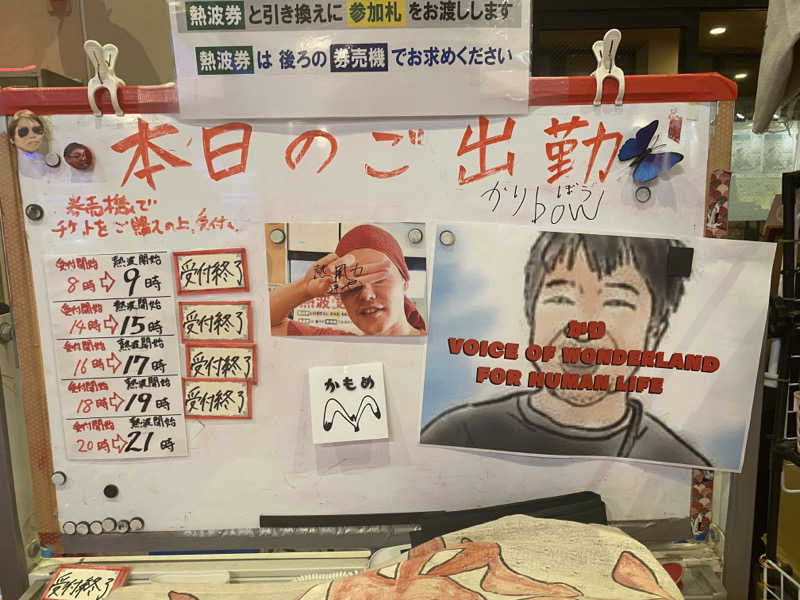 熱波券と引き換えに参加札をお渡しします
熱波券は後ろの券売機でお求めください
本日のご出勤
かりbow
ぼう
券売機で
チケットをご購入の上、受付へ
受付開始 熱波開始
8時⇨9時
受付終了
受付開始 熱波開始
14時⇨15時
受付終了
受付開始 熱波開始
16時⇨17時
受付終了
受付開始 熱波開始
18時⇨19時
受付終了
受付開始 熱波開始
20時⇨21時
かもめ
かり
VOICE OF WONDERLAND
FOR HUMAN LIFE
受付終了